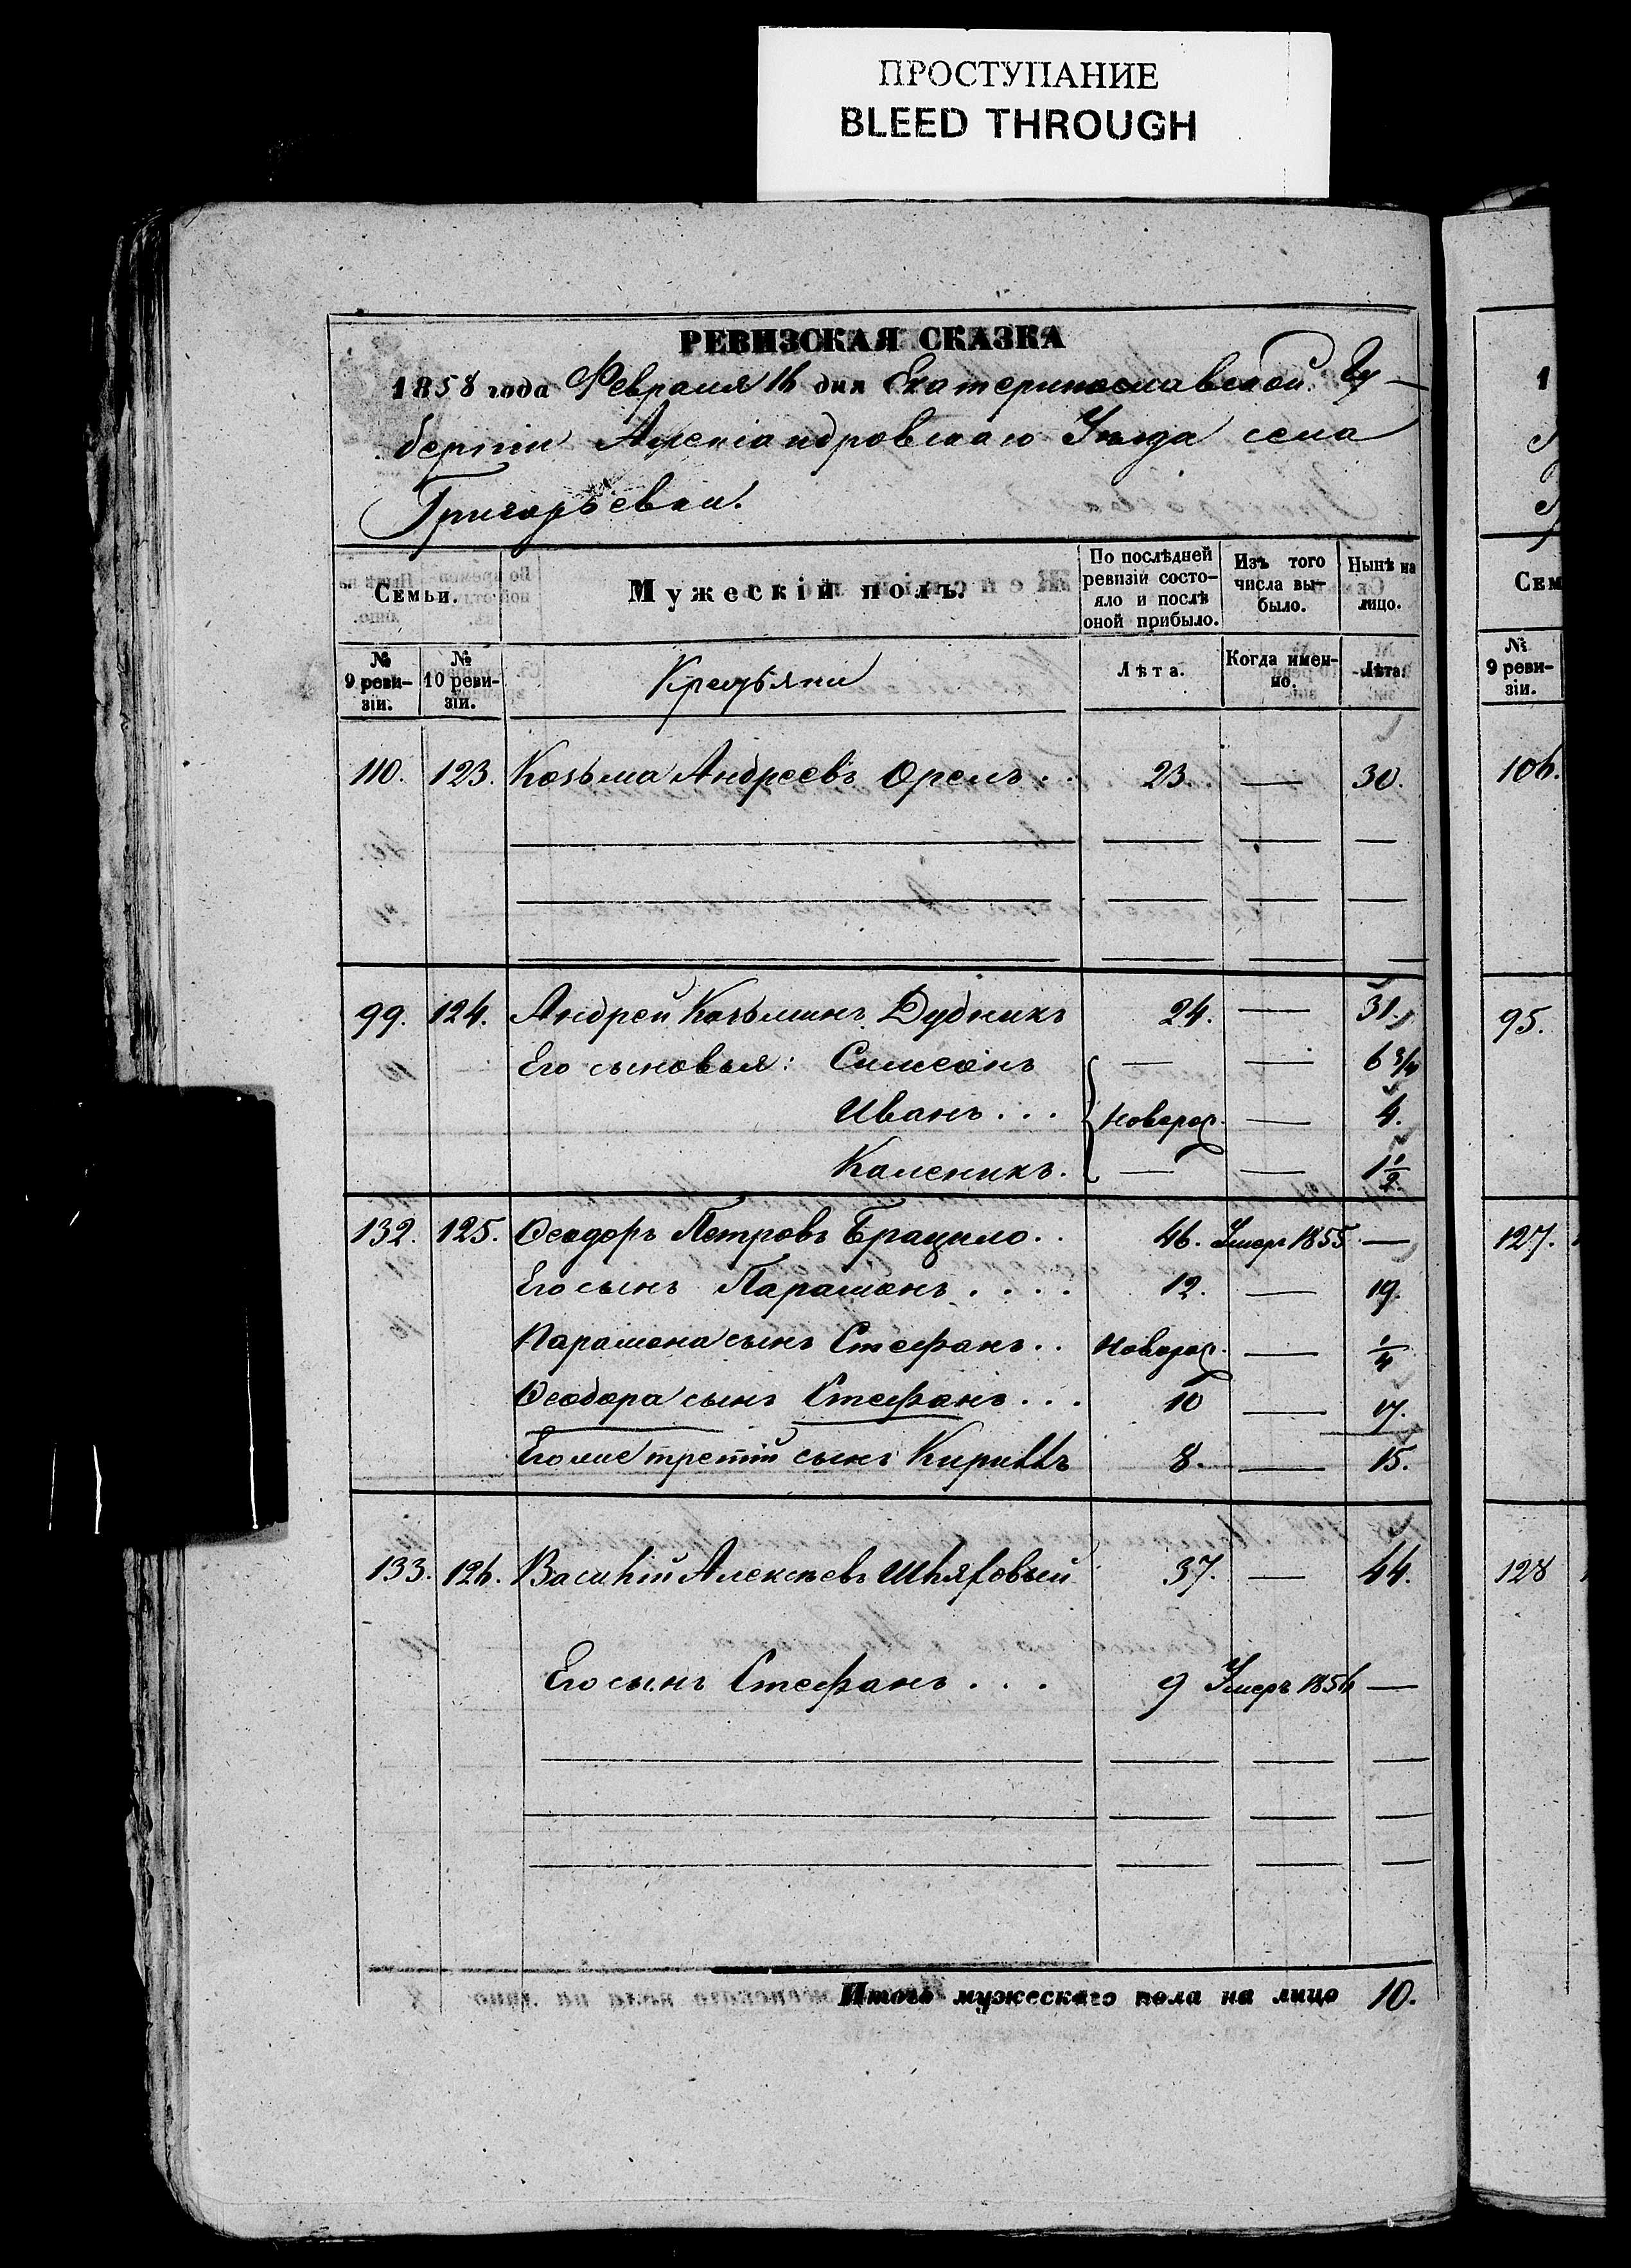 ПРОСТУПАНИЕ
BLEED THROUGH
РЕВИЗСКАЯ СКАЗКА
1858 года Февраля 16 дня Екатеринославской Гу-
бернiи Александровскаго Уѣзда села
Григорьевки.
Семьи.
Мужескiй полъ.
По послѣдней
ревизiи состо-
яло и послѣ
оной прибыло.
Изъ того
числа вы-
было.
Нынѣ на
лицо.
№
9 реви-
зiи.
№
10 реви-
зiи.
Крестьяни
Лѣта.
Когда имен-
но.
Лѣта.
110. 123. Козьма Андреевъ Орелъ . . 23. — 30.
99. 124. Андрей Козьминъ Дубникъ 24. — 31.
Его сыновья: Симеонъ — — 6 3/4
Иванъ . . . Новорож. — 4.
Каленикъ. — — 1 1/2
132. 125. Ѳеодоръ Петровъ Брацило . . 46. Умеръ 1855 —
Его сынъ Парамонъ . . . . 12. — 19.
Парамона сынъ Стефанъ . . Новорож. — 1/4
Ѳеодора сынъ Стефанъ . . . 10 — 17.
Его же третiй сынъ Кириллъ 8. — 15.
133. 126. Василiй Алексѣевъ Шляховый 37. — 44.
Его сынъ Стефанъ . . . 9 Умеръ 1856 —
Итого мужескаго пола на лицо 10.
1
Сем
№
9 реви-
зiи.
106.
95.
127.
128